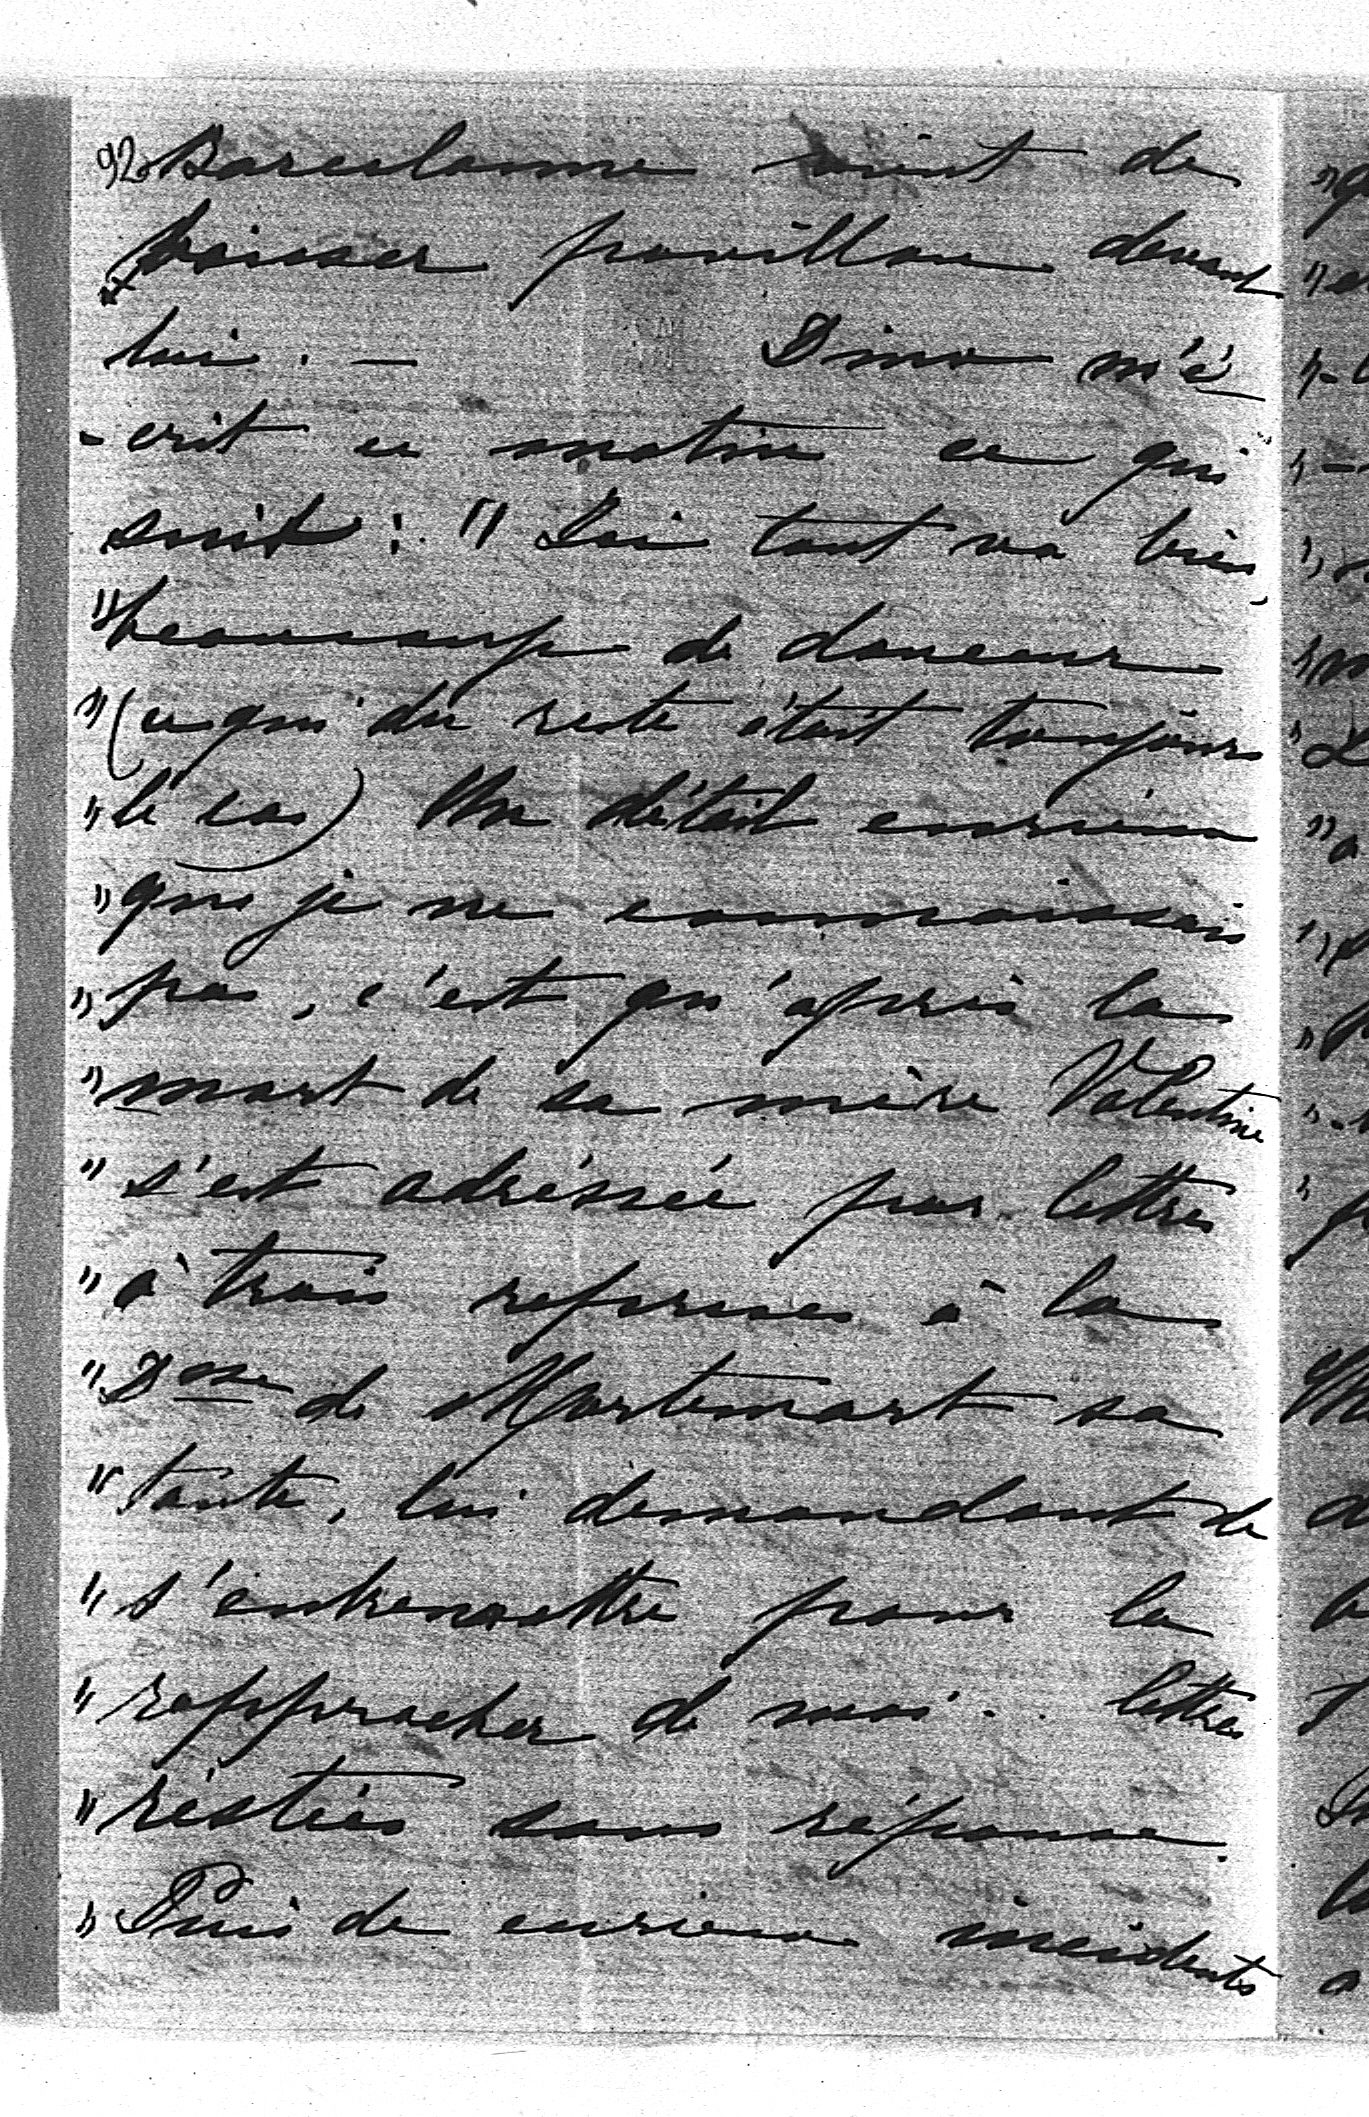 92. Barcelonne vient de
baisser pavillon devant
lui. — Dino m'é
-crit ce matin ce qui
suit : " Ici tout va bien,
" beaucoup de douceur
" (ce qui du reste était toujours
" le cas) Un détail curieux
" que je ne connaissais
" pas, c'est qu'après la
" mort de sa mère Valentine
" s'est adréssée par lettres
" à trois reprises à la
" Dsse de Mortemart sa
" tante, lui demandant de
" s'entremettre pour la
" rapprocher de moi. lettres
" réstées sans réponse.
" Puis de curieux incidents